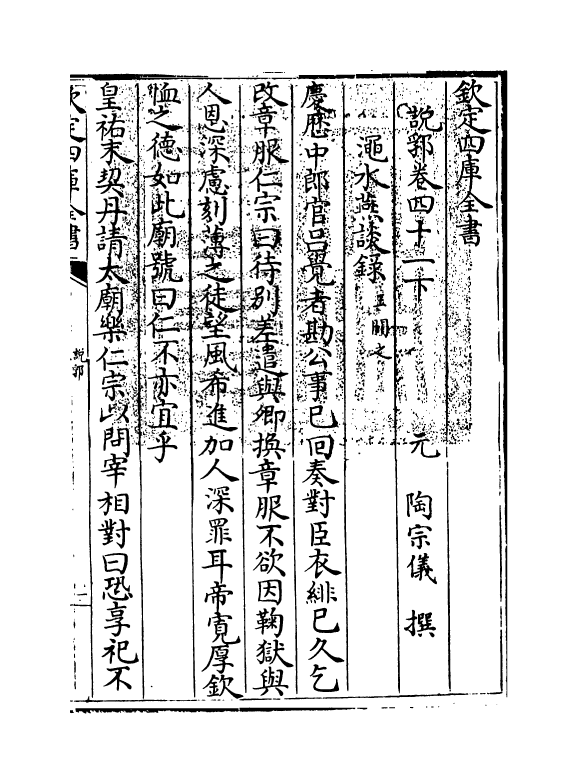 欽定四庫全書
說郛卷四十一下　元　陶宗儀　撰
澠水燕談錄王闢之
慶歴中郎官吕覺者勘公事已回奏對臣衣緋已久乞
改章服仁宗曰待别差遣與卿換章服不欲因鞠獄與
人恩深慮刻薄之徒望風希進加人深罪耳帝寛厚欽
恤之德如此廟號曰仁不亦宜乎
皇祐末契丹請太廟樂仁宗以問宰相對曰恐享祀不
欽定四庫全書
說郛